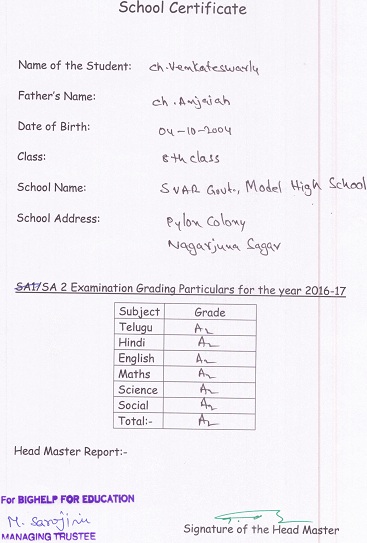 School Certificate
Name of the Student: ch. Venkateswarlu
Father's Name: ch. Anjaiah
Date of Birth: 04-10-2004
Class: 8th class
School Name: SVAR Govt., Model High School
School Address: Pylon Colony
Nagarjuna Sagar
SA1/SA 2 Examination Grading Particulars for the year 2016-17
Subject Grade
Telugu A2
Hindi A2
English A2
Maths A2
Science A2
Social A2
Total:- A2
Head Master Report:-
For BIGHELP FOR EDUCATION
M. Sarojini
MANAGING TRUSTEE
Signature of the Head Master